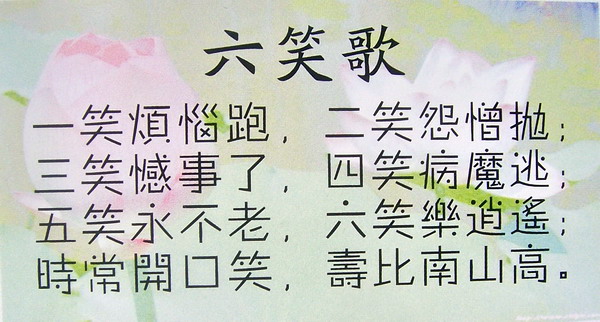 六笑歌
一笑煩惱跑，二笑怨憎拋；
三笑憾事了，四笑病魔逃；
五笑永不老，六笑樂逍遙；
時常開口笑，壽比南山高。